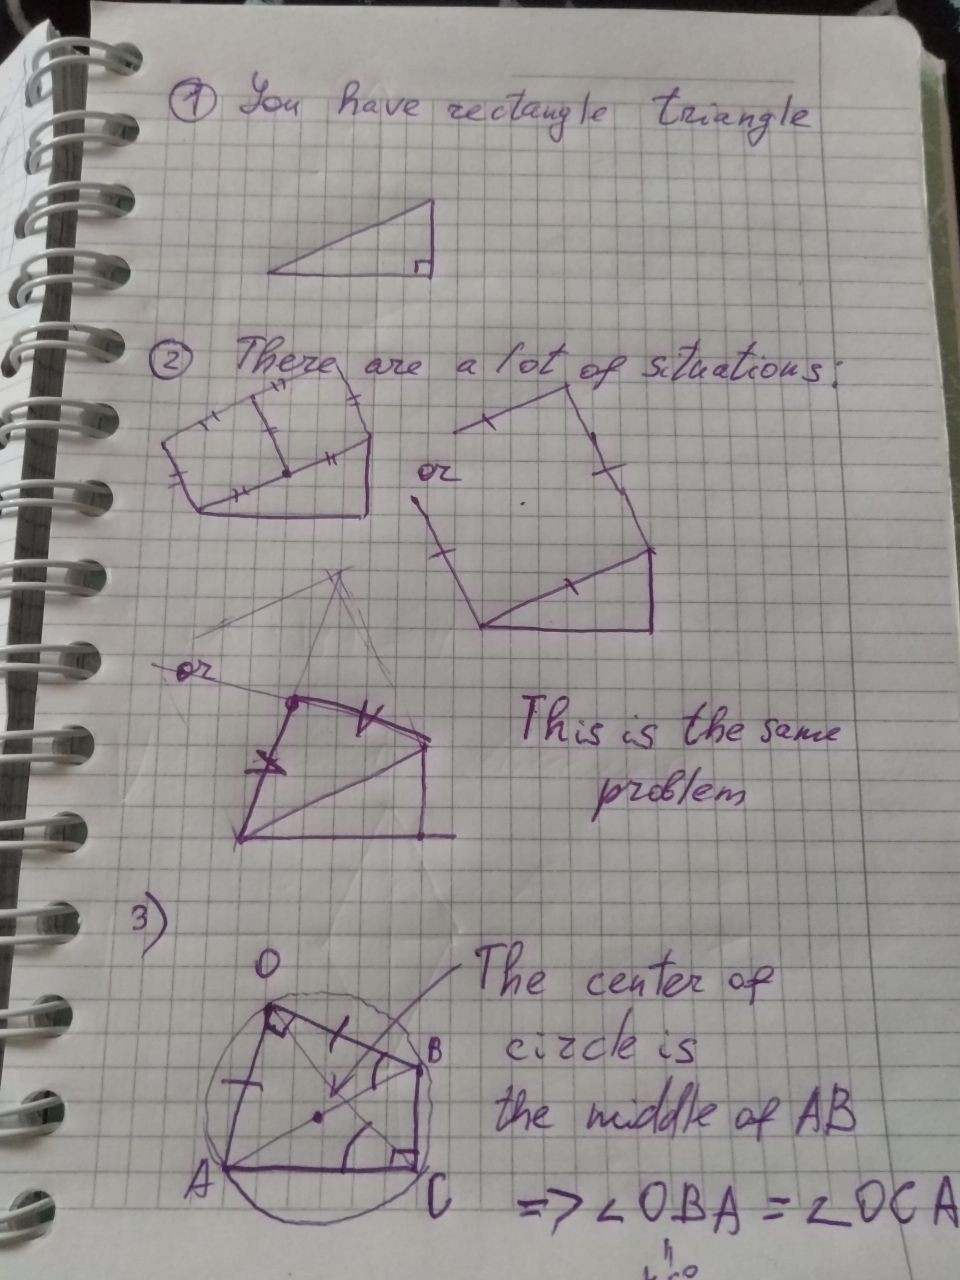 ① You have rectangle triangle
② There are a lot of situations:
or
or
This is the same
problem
3)
O
The center of
circle is
the middle of AB
B
A
C
=> ∠OBA = ∠OCA